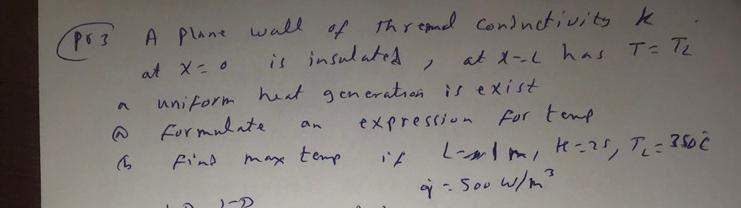 Pr 3 A plane wall of thremal conductivity k.
at x=0 is insulated, at x=L has T=TL
a uniform heat generation is exist
(a) formulate an expression for temp
(b) find max temp if L=1 m, K=25, TL=350°C
q̇=500 W/m³
1-D